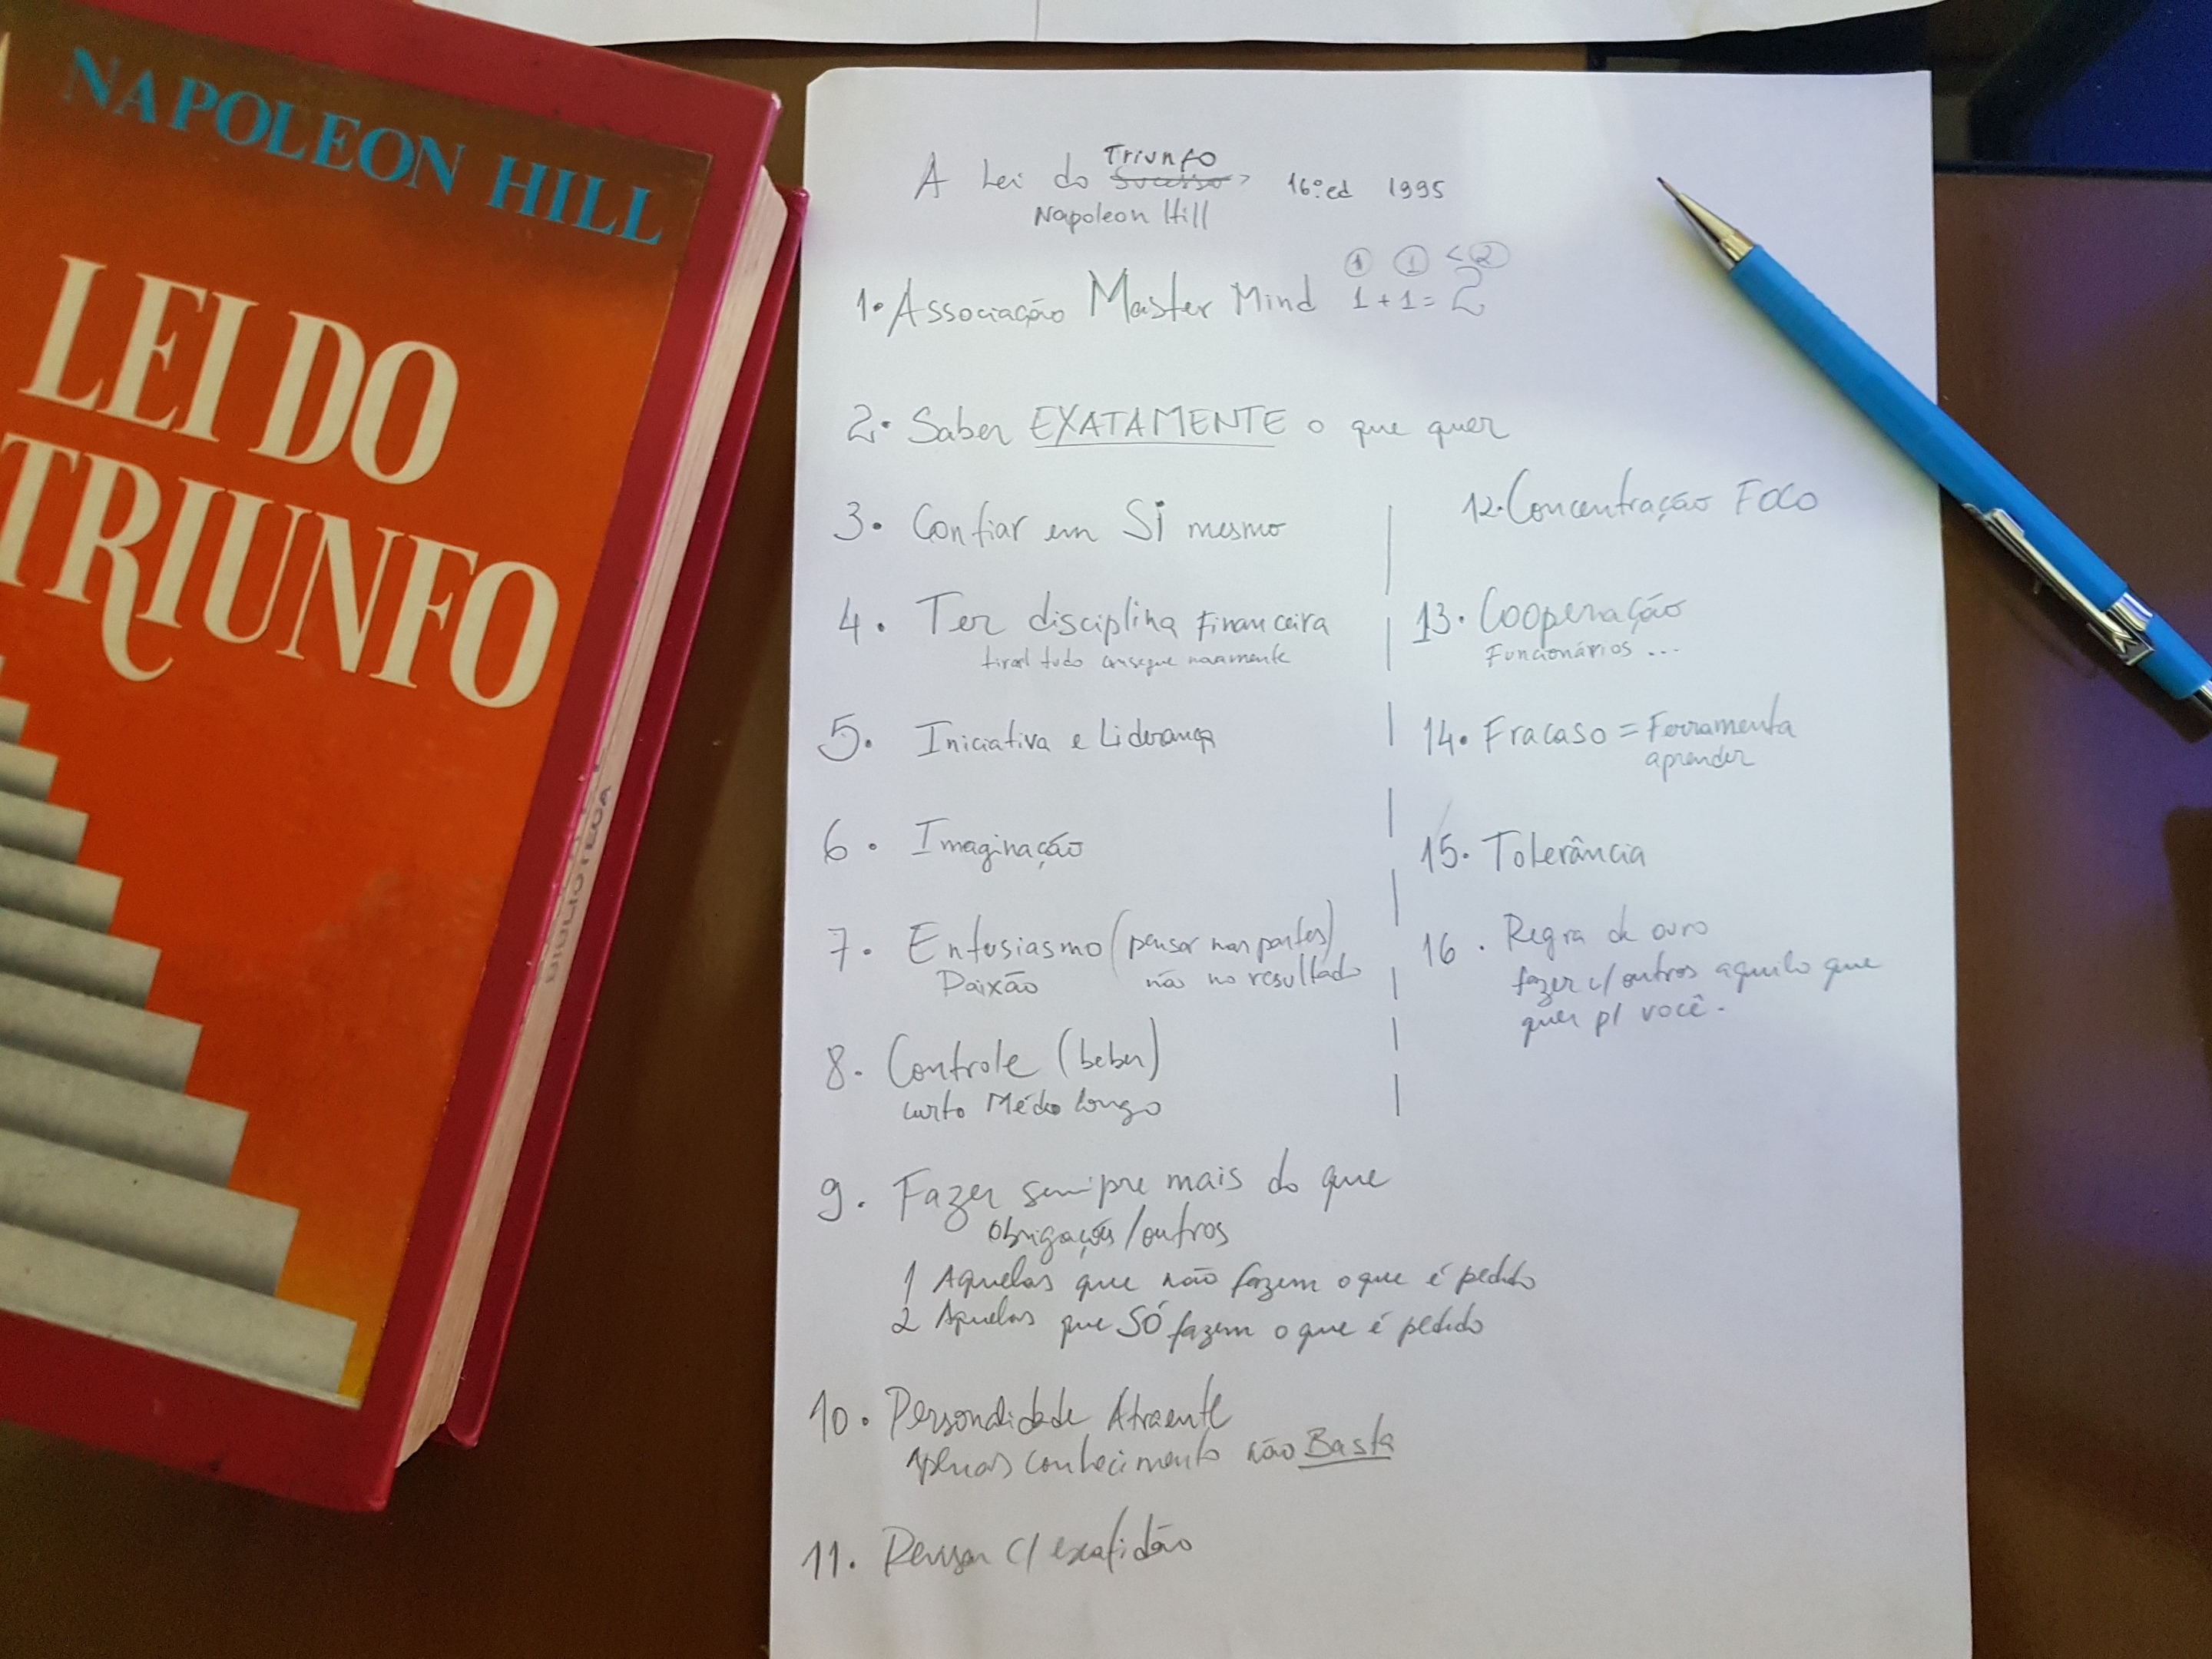 NAPOLEON HILL
LEI DO
TRIUNFO
BIBLIOTECA
Triunfo
A Lei do Sucesso 16º ed 1995
Napoleon Hill
1 1 < 2
1. Associação Master Mind 1 + 1 = 2
2. Saber EXATAMENTE o que quer
3. Confiar em SI mesmo
4. Ter disciplina Financeira
tudo consegue novamente
5. Iniciativa e Liderança
6. Imaginação
7. Entusiasmo (pensar nas partes)
Paixão não no resultado
8. Controle (beber)
curto Médio longo
9. Fazer sempre mais do que
obrigações/outros
1 Aquelas que não fazem o que é pedido
2 Aquelas que SÓ fazem o que é pedido
10. Personalidade Atraente
Apenas conhecimento não Basta
11. Pensar c/ exatidão
12. Concentração FOCO
13. Cooperação
Funcionários ...
14. Fracaso = Ferramenta
aprender
15. Tolerância
16. Regra de ouro
fazer c/ outros aquilo que
quer p/ você.